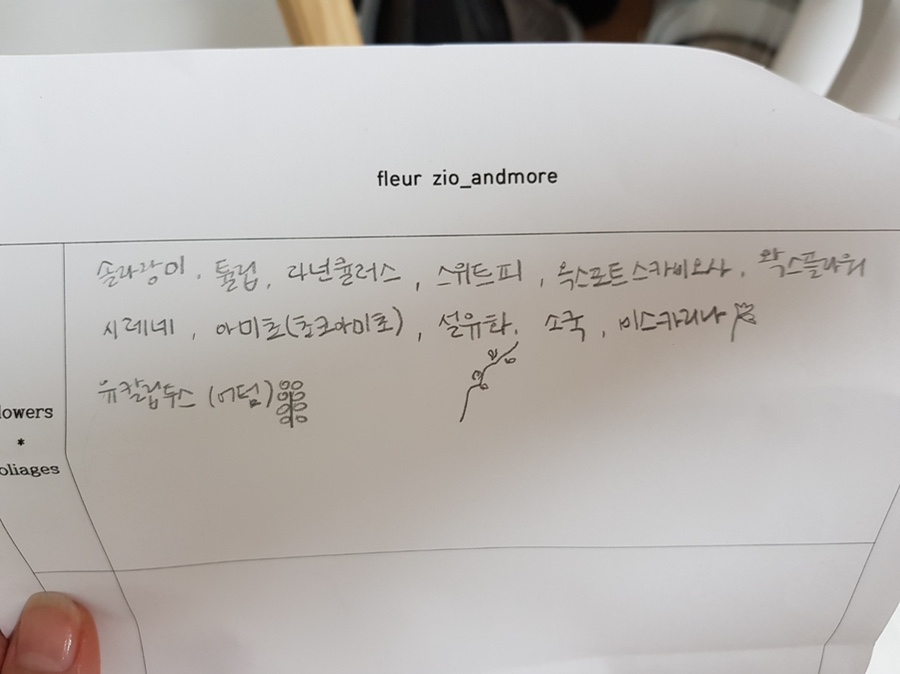 fleur zio_andmore
솔라랑이, 튤립, 라넌큘러스, 스위트피, 옥스포트스카비오사, 왁스플라워
시레네, 아미초(초코아미초), 설유화, 소국, 비스카리나
유칼립투스 (어텀)
lowers
*
oliages